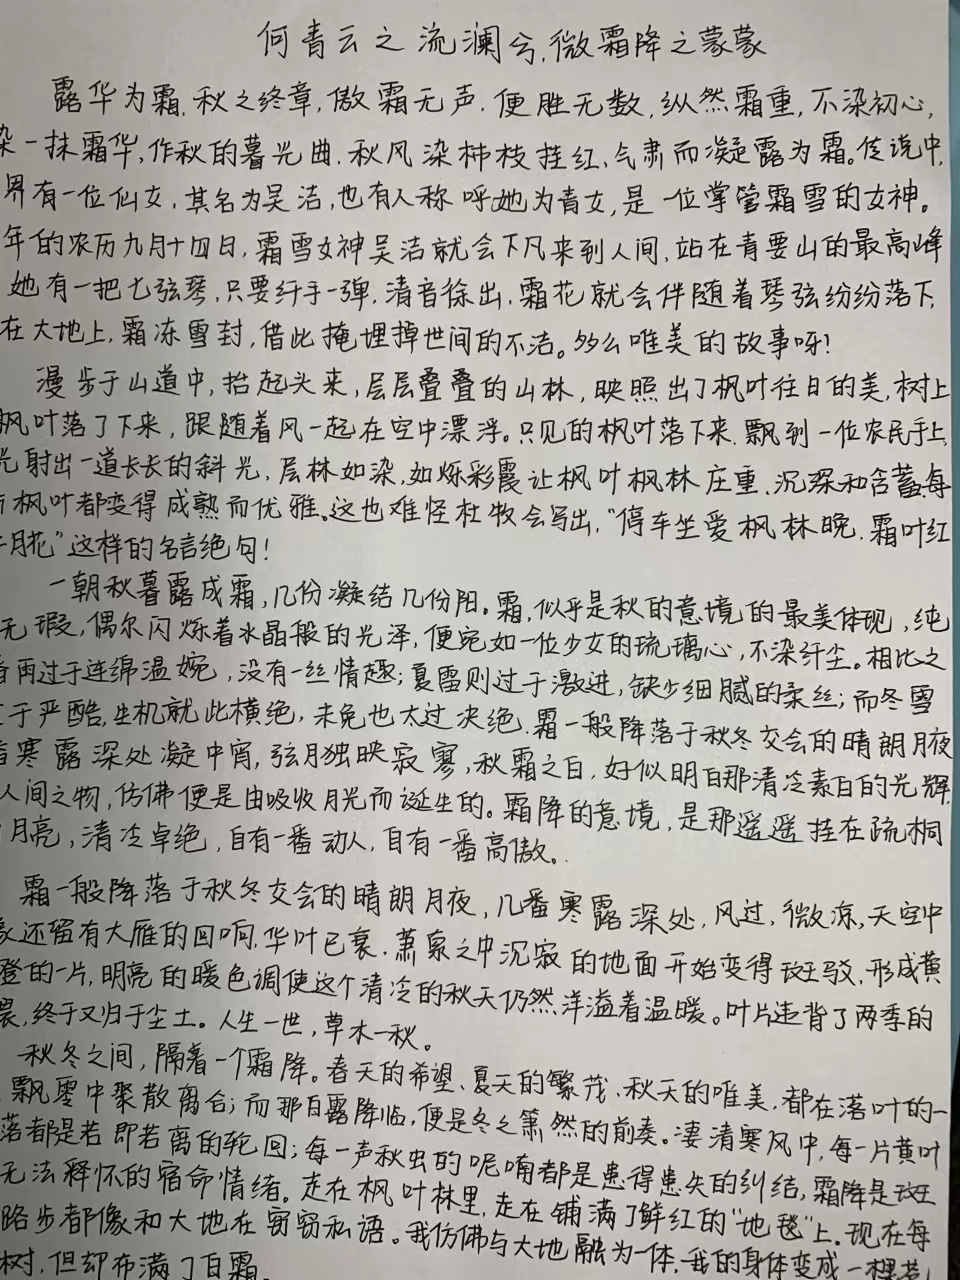 何青云之流澜兮,微霜降之蒙蒙
露华为霜,秋之终章,傲霜无声.便胜无数,纵然霜重,不染初心,
染一抹霜华,作秋的暮光曲.秋风染柿枝挂红,气肃而凝露为霜。传说中,
界有一位仙女,其名为吴洁,也有人称呼她为青女,是一位掌管霜雪的女神。
年的农历九月十四日,霜雪女神吴洁就会下凡来到人间,站在青要山的最高峰
她有一把七弦琴,只要纤手一弹,清音徐出.霜花就会伴随着琴弦纷纷落下,
在大地上,霜冻雪封,借此掩埋掉世间的不洁。多么唯美的故事呀!
漫步于山道中,抬起头来,层层叠叠的山林,映照出了枫叶往日的美,树上
枫叶落了下来,跟随着风一起在空中漂浮。只见的枫叶落下来.飘到一位农民手上,
光射出一道长长的斜光,层林如染,如烁彩霞让枫叶枫林庄重、沉深和含蓄,每
枫叶都变得成熟而优雅。这也难怪杜牧会写出,“停车坐爱枫林晚.霜叶红
月花”这样的名言绝句!
一朝秋暮露成霜,几份凝结几份阳。霜,似乎是秋的意境的最美体现,纯
无瑕,偶尔闪烁着水晶般的光泽,便宛如一位少女的琉璃心,不染纤尘。相比之
雨过于连绵温婉,没有一丝情趣;夏雷则过于激进,缺少细腻的柔丝;而冬雪
于严酷,生机就此横绝,未免也太过决绝.霜一般降落于秋冬交会的晴朗月夜
寒露深处凝中宵,弦月独映寂寥,秋霜之白,好似明白那清冷素白的光辉,
人间之物,仿佛便是由吸收月光而诞生的。霜降的意境,是那遥遥挂在疏桐
月亮,清冷卓绝,自有一番动人,自有一番高傲。.
霜一般降落于秋冬交会的晴朗月夜,几番寒露深处,风过,微凉,天空中
还留有大雁的回响.华叶已衰.萧条之中沉寂的地面开始变得斑驳,形成黄
澄的一片,明亮的暖色调使这个清冷的秋天仍然洋溢着温暖。叶片违背了两季的
晨,终于又归于尘土。人生一世,草木一秋。
秋冬之间,隔着一个霜降。春天的希望、夏天的繁茂、秋天的唯美,都在落叶的一
飘零中聚散离合;而那白露降临,便是冬之箫然的前奏。凄清寒风中,每一片黄叶
落都是若即若离的轮回;每一声秋虫的呢喃都是患得患失的纠结,霜降是斑
无法释怀的宿命情绪。走在枫叶林里,走在铺满了鲜红的“地毯”上.现在每
路步都像和大地在窃窃私语。我仿佛与大地融为一体,我的身体变成一棵苍
树,但却布满了白霜。